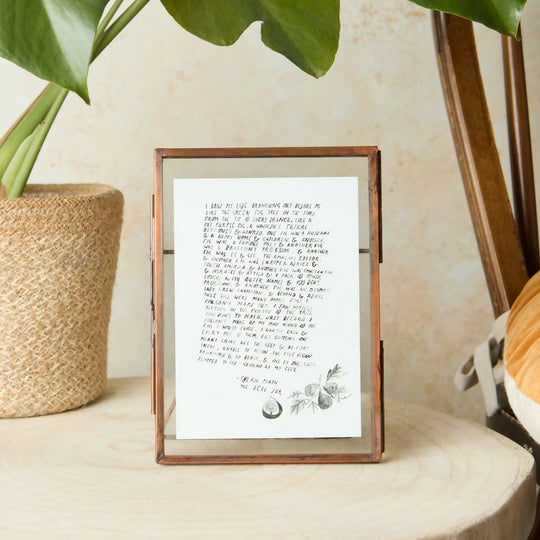 I SAW MY LIFE BRANCHING OUT BEFORE ME
LIKE THE GREEN FIG TREE IN THE STORY
FROM THE TIP OF EVERY BRANCH, LIKE A
FAT PURPLE FIG, A WONDERFUL FUTURE
BECKONED & WINKED. ONE FIG WAS A HUSBAND
& A HAPPY HOME & CHILDREN & ANOTHER
FIG WAS A FAMOUS POET & ANOTHER FIG
WAS A BRILLIANT PROFESSOR & ANOTHER
FIG WAS EE & GEE, THE AMAZING EDITOR
& ANOTHER FIG WAS EUROPE & AFRICA &
SOUTH AMERICA & ANOTHER FIG WAS CONSTANTIN
& SOCRATES & ATTILA & A PACK OF OTHER
LOVERS WITH QUEER NAMES & ODDBEAT
PROFESSIONS & ANOTHER FIG WAS AN OLYMPIC
LADY CREW CHAMPION & BEYOND & ABOVE
THESE FIGS WERE MANY MORE FIGS I
COULDN'T MAKE OUT. I SAW MYSELF
SITTING IN THE CROTCH OF THE TREE
STARVING TO DEATH, JUST BECAUSE I
COULDN'T MAKE UP MY MIND WHICH OF THE
FIGS I WOULD CHOOSE. I WANTED EACH &
EVERY ONE OF THEM BUT CHOOSING ONE
MEANT LOSING ALL THE REST & AS I SAT
THERE, UNABLE TO DECIDE, THE FIGS BEGAN
TO WRINKLE & GO BLACK & ONE BY ONE, THEY
PLOPPED TO THE GROUND AT MY FEET
- SYLVIA PLATH
THE BELL JAR